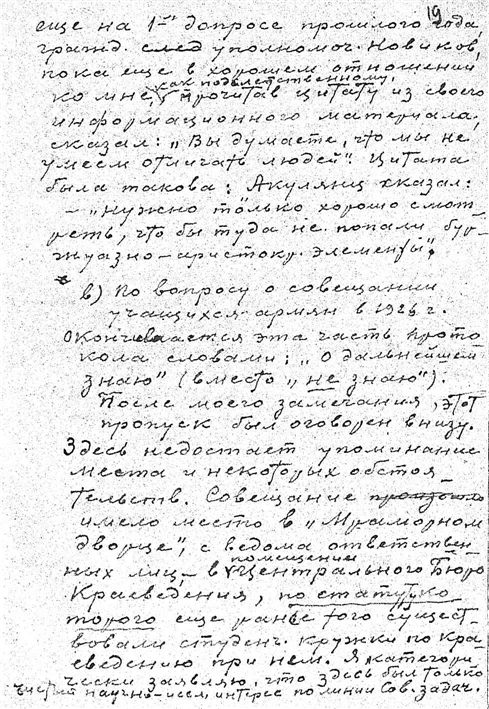 19
еще на 1-м допросе прошлого года,
гражд. след уполномоч. Новиков,
пока еще в хорошем отношении
ко мне, как подследственному,
прочитав цитату из своего
информационного материала,
сказал: „Вы думаете, что мы не
умеем отличать людей". Цитата
была такова: Акулянц сказал:
– „нужно только хорошо смот-
реть, что бы туда не попали бур-
жуазно-аристокр. элементы".
в) По вопросу о совещании
учащихся-армян в 1926 г.
Окончивается эта часть прото
кола словами: „о дальнейшем
знаю" (вместо „не знаю").
После моего замечания, этот
пропуск был оговорен внизу.
Здесь недостает упоминание
места и некоторых обстоя_
тельств. Совещание произошло
имело место в „Мраморном
дворце", с ведома ответствен_
ных лиц – в помещении Центрального Бюро
Краеведения, по статуту ко
торого еще ранее того сущест_
вовали студенч. кружки по кра_
еведению при нем. Я категори_
чески заявляю, что здесь был только
чистый научно-исслед. интерес по линии Сов. задач.